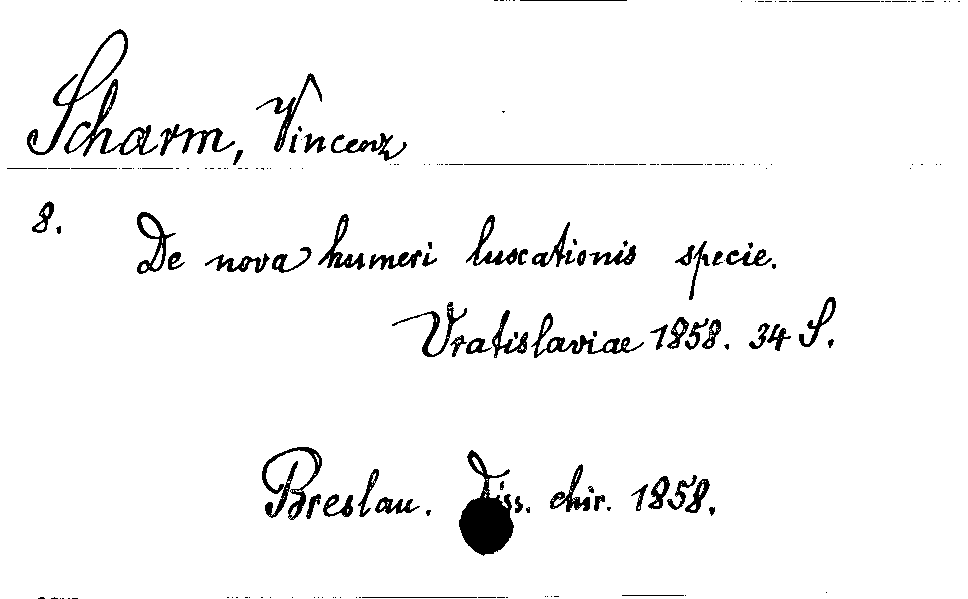 Scharm, Vincenz
8. De nova humeri luxationis specie.
Vratislaviae 1858. 34 S.
Breslau. Diss. chir. 1858.